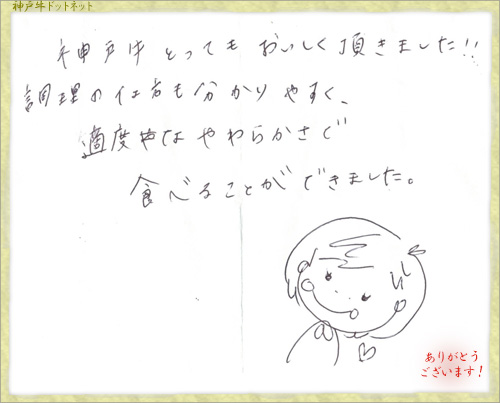 神戸牛ドットネット
神戸牛とってもおいしく頂きました!!
調理の仕方も分かりやすく、
適度なやわらかさで
食べることができました。
ありがとう
ございます!